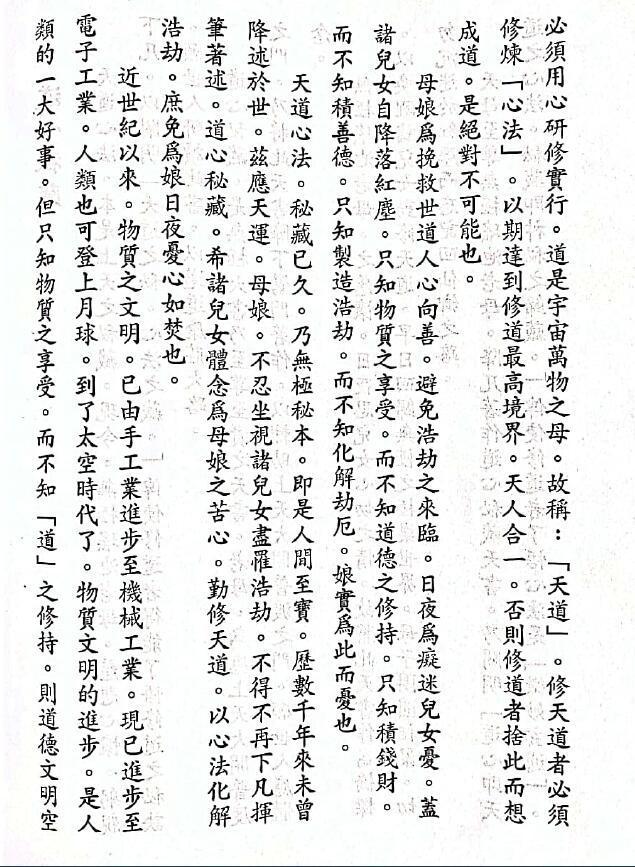 必須用心研修實行。道是宇宙萬物之母。故稱：「天道」。修天道者必須
修煉「心法」。以期達到修道最高境界。天人合一。否則修道者捨此而想
成道。是絕對不可能也。
母娘爲挽救世道人心向善。避免浩劫之來臨。日夜爲癡迷兒女憂。蓋
諸兒女自降落紅塵。只知物質之享受。而不知道德之修持。只知積錢財。
而不知積善德。只知製造浩劫。而不知化解劫厄。娘實爲此而憂也。
天道心法。秘藏已久。乃無極秘本。即是人間至寶。歷數千年來未曾
降述於世。茲應天運。母娘。不忍坐視諸兒女盡罹浩劫。不得不再下凡揮
筆著述。道心秘藏。希諸兒女體念爲母娘之苦心。勤修天道。以心法化解
浩劫。庶免爲娘日夜憂心如焚也。
近世紀以來。物質之文明。已由手工業進步至機械工業。現已進步至
電子工業。人類也可登上月球。到了太空時代了。物質文明的進步。是人
類的一大好事。但只知物質之享受。而不知「道」之修持。則道德文明空